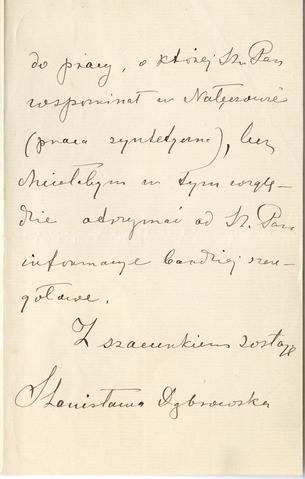 do pracy, o której Sz. Pan
wspominał w Nałęczowie
(praca syntetyczna), lecz
chciałabym w tym wzglę-
dzie otrzymać od Sz. Pana
informacye bardziej szcze-
gółowe.
Z szacunkiem zostaję
Stanisława Dąbrowska